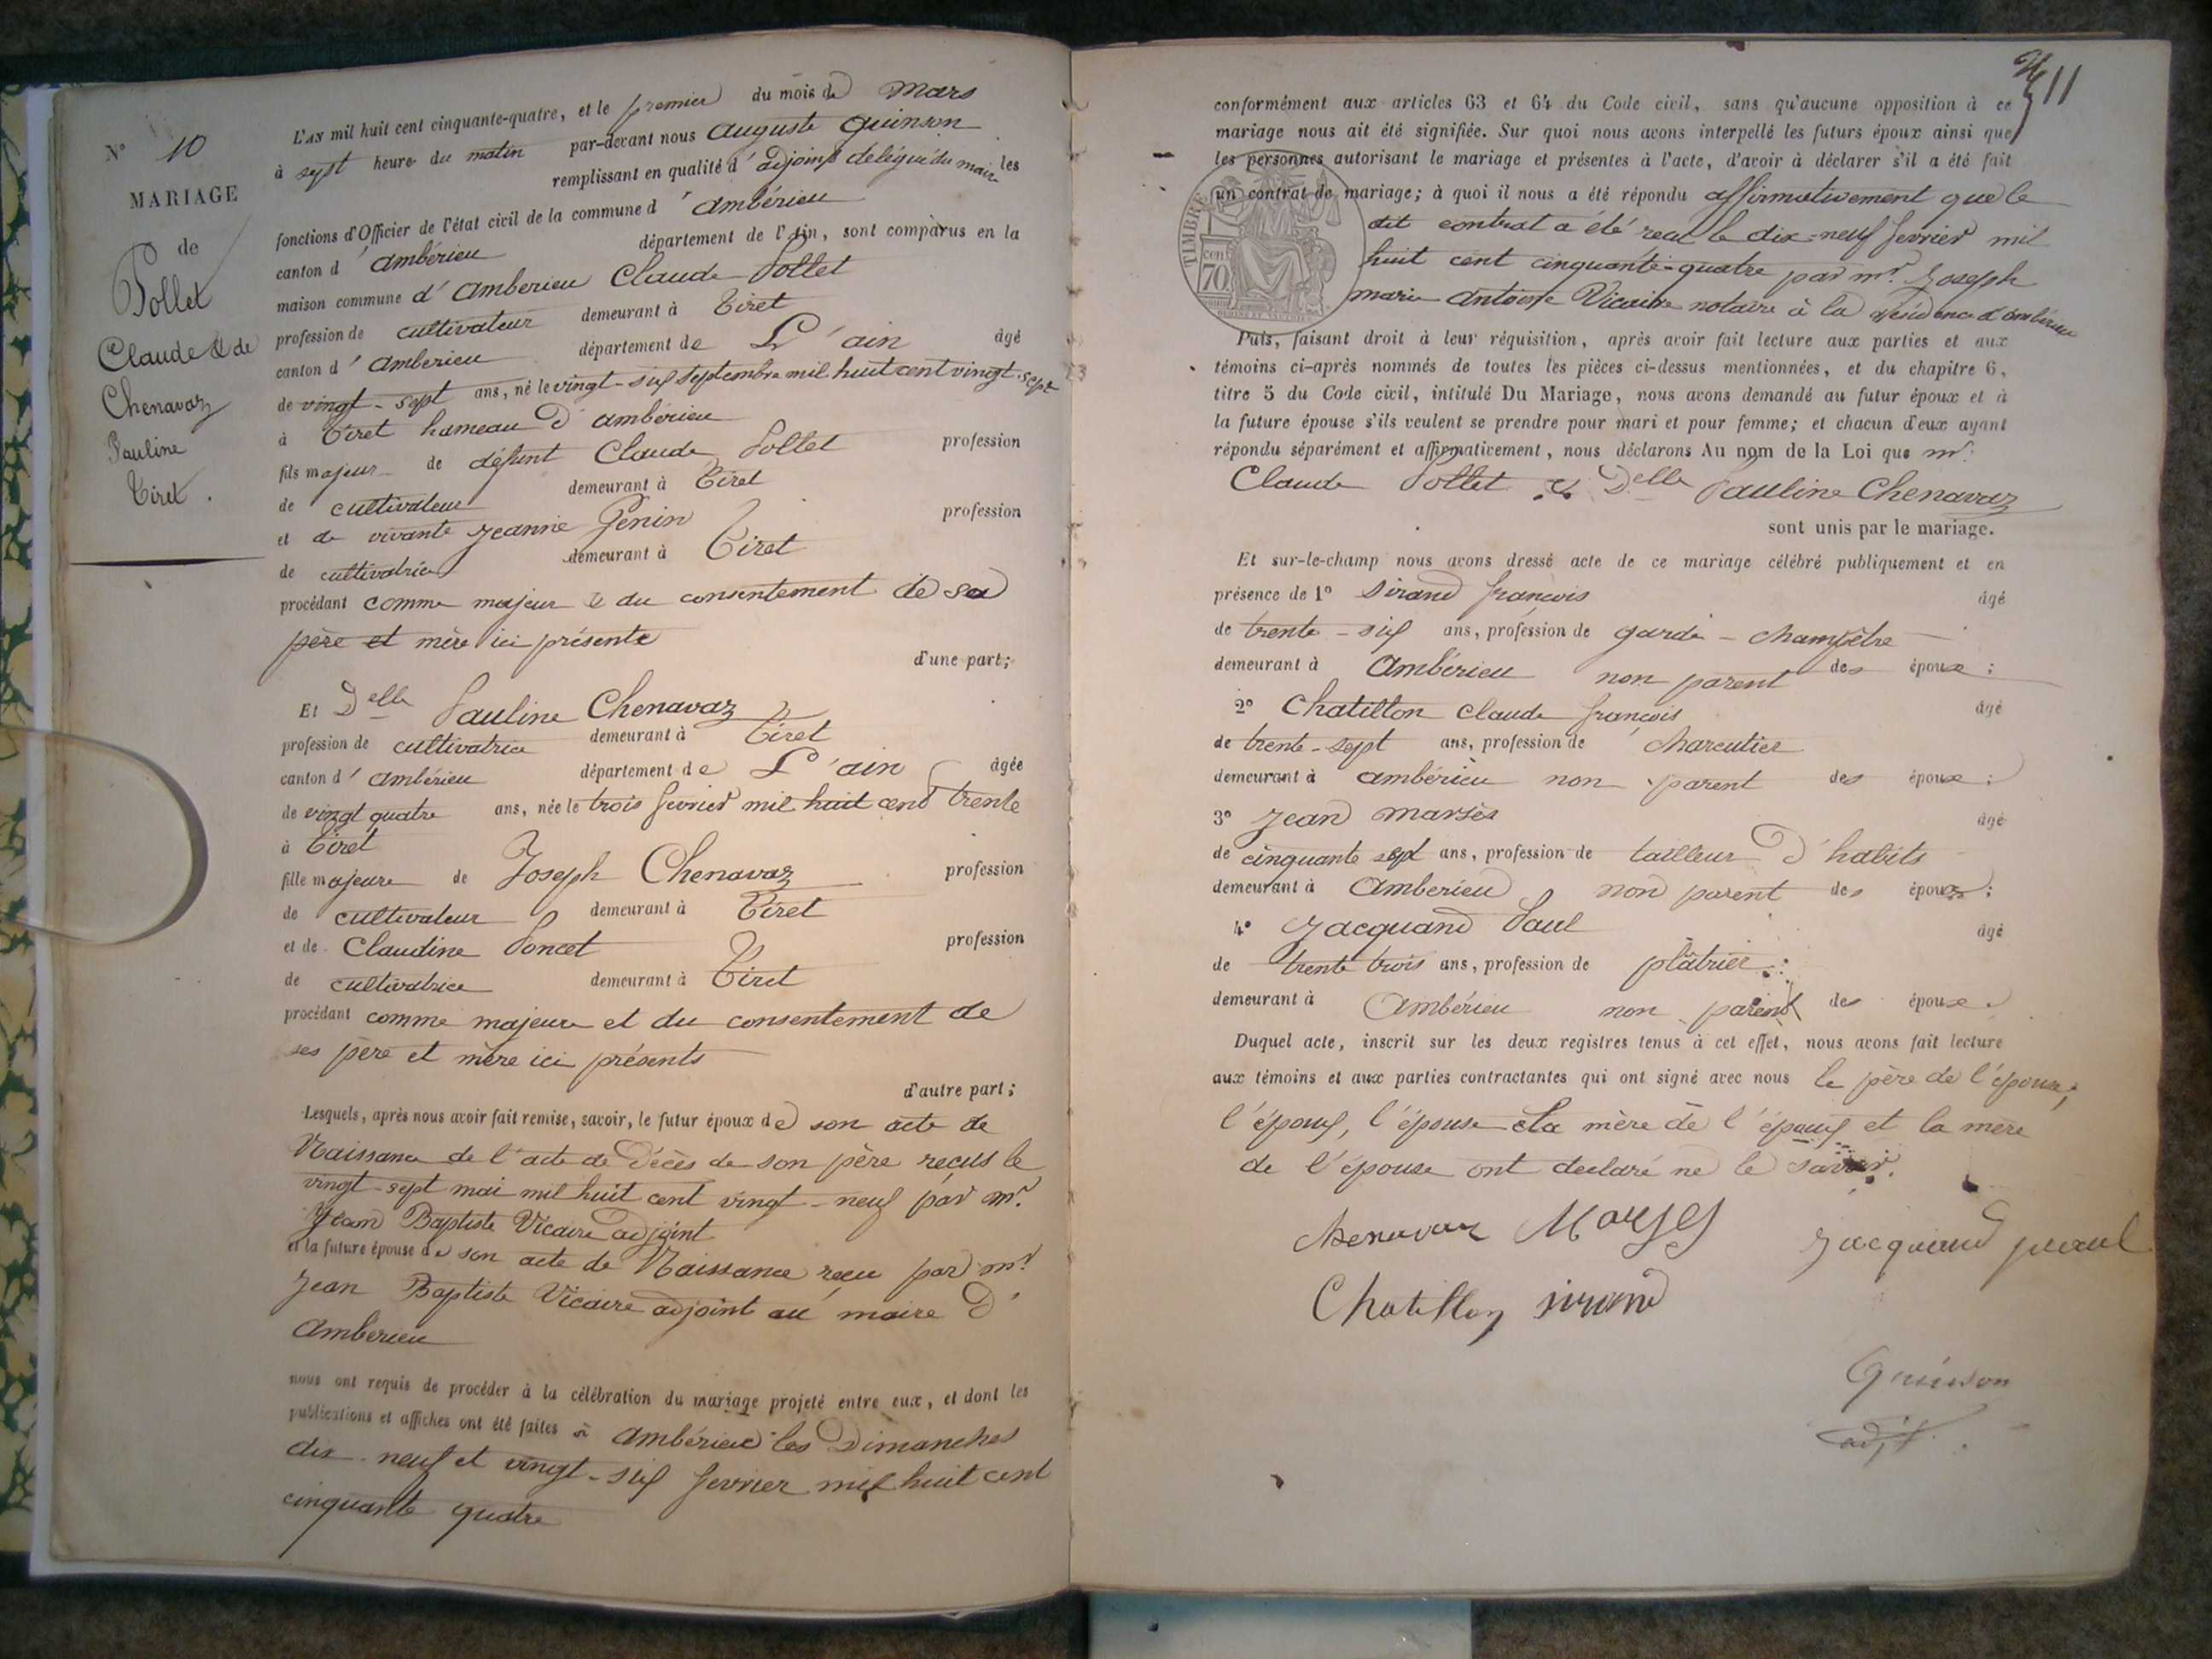 N° 10
MARIAGE
de
Pollet
Claude & de
Chenavaz
Pauline
Tiret.
L'AN mil huit cent cinquante-quatre, et le premier du mois de Mars
à sept heure du matin par-devant nous Auguste Guinson
remplissant en qualité d'adjoint délégué du maire les
fonctions d'Officier de l'état civil de la commune d'ambérieu
canton d'ambérieu département de l'Ain, sont comparus en la
maison commune d'Amberieu Claude Pollet
profession de cultivateur demeurant à Tiret
canton d'amberieu département de L'ain âgé
de vingt-sept ans, né le vingt-six septembre mil huit cent vingt-sept
à Tiret hameau D'ambérieu
fils majeur de défunt Claude Pollet profession
de cultivateur demeurant à Tiret
et de vivante Jeanne Genin profession
de cultivatrice demeurant à Tiret
procédant comme majeur & du consentement de sa
père et mère ici présente
d'une part;
Et Delle Pauline Chenavaz
profession de cultivatrice demeurant à Tiret
canton d'ambérieu département de L'ain âgée
de vingt quatre ans, née le trois fevrier mil huit cent trente
à Tiret
fille majeure de Joseph Chenavaz profession
de cultivateur demeurant à Tiret
et de Claudine Poncet profession
de cultivatrice demeurant à Tiret
procédant comme majeure et du consentement de
ses père et mère ici présents
d'autre part;
Lesquels, après nous avoir fait remise, savoir, le futur époux de son acte de
Naissance de l'acte de Décès de son père reçus le
vingt-sept mai mil huit cent vingt-neuf par mr.
Jean Baptiste Vicaire adjoint
et la future épouse de son acte de Naissance reçu par mr.
Jean Baptiste Vicaire adjoint au maire D'
Amberieu
nous ont requis de procéder à la célébration du mariage projeté entre eux, et dont les
publications et affiches ont été faites à Ambérieu les Dimanches
dix-neuf et vingt-six fevrier mil huit cent
cinquante quatre
11
conformément aux articles 63 et 64 du Code civil, sans qu'aucune opposition à ce
mariage nous ait été signifiée. Sur quoi nous avons interpellé les futurs époux ainsi que
les personnes autorisant le mariage et présentes à l'acte, d'avoir à déclarer s'il a été fait
un contrat de mariage; à quoi il nous a été répondu affirmativement que le
dit contrat a été reçu le dix-neuf fevrier mil
huit cent cinquante-quatre par mr. Joseph
marie Antoine Vicaire notaire à la résidence d'ambérieu
TIMBRE
70 cent
Puis, faisant droit à leur réquisition, après avoir fait lecture aux parties et aux
témoins ci-après nommés de toutes les pièces ci-dessus mentionnées, et du chapitre 6,
titre 5 du Code civil, intitulé Du Mariage, nous avons demandé au futur époux et à
la future épouse s'ils veulent se prendre pour mari et pour femme; et chacun d'eux ayant
répondu séparément et affirmativement, nous déclarons Au nom de la Loi que mr.
Claude Pollet & Delle Pauline Chenavaz
sont unis par le mariage.
Et sur-le-champ nous avons dressé acte de ce mariage célébré publiquement et en
présence de 1° Sirand françois âgé
de trente-six ans, profession de garde-champêtre
demeurant à Ambérieu non parent des époux;
2° Chatillon Claude françois âgé
de trente-sept ans, profession de charcutier
demeurant à ambérieu non parent des époux;
3° Jean marsès âgé
de cinquante sept ans, profession de tailleur D'habits
demeurant à Amberieu non parent des époux;
4° Jacquand Paul âgé
de trente trois ans, profession de plâtrier
demeurant à Ambérieu non parent des époux.
Duquel acte, inscrit sur les deux registres tenus à cet effet, nous avons fait lecture
aux témoins et aux parties contractantes qui ont signé avec nous le père de l'épouse,
l'époux, l'épouse la mère de l'époux et la mère
de l'épouse ont declaré ne le savoir.
Chenavaz Marses Jacquand paul
Chatillon Sirand
Guinson
adjt.